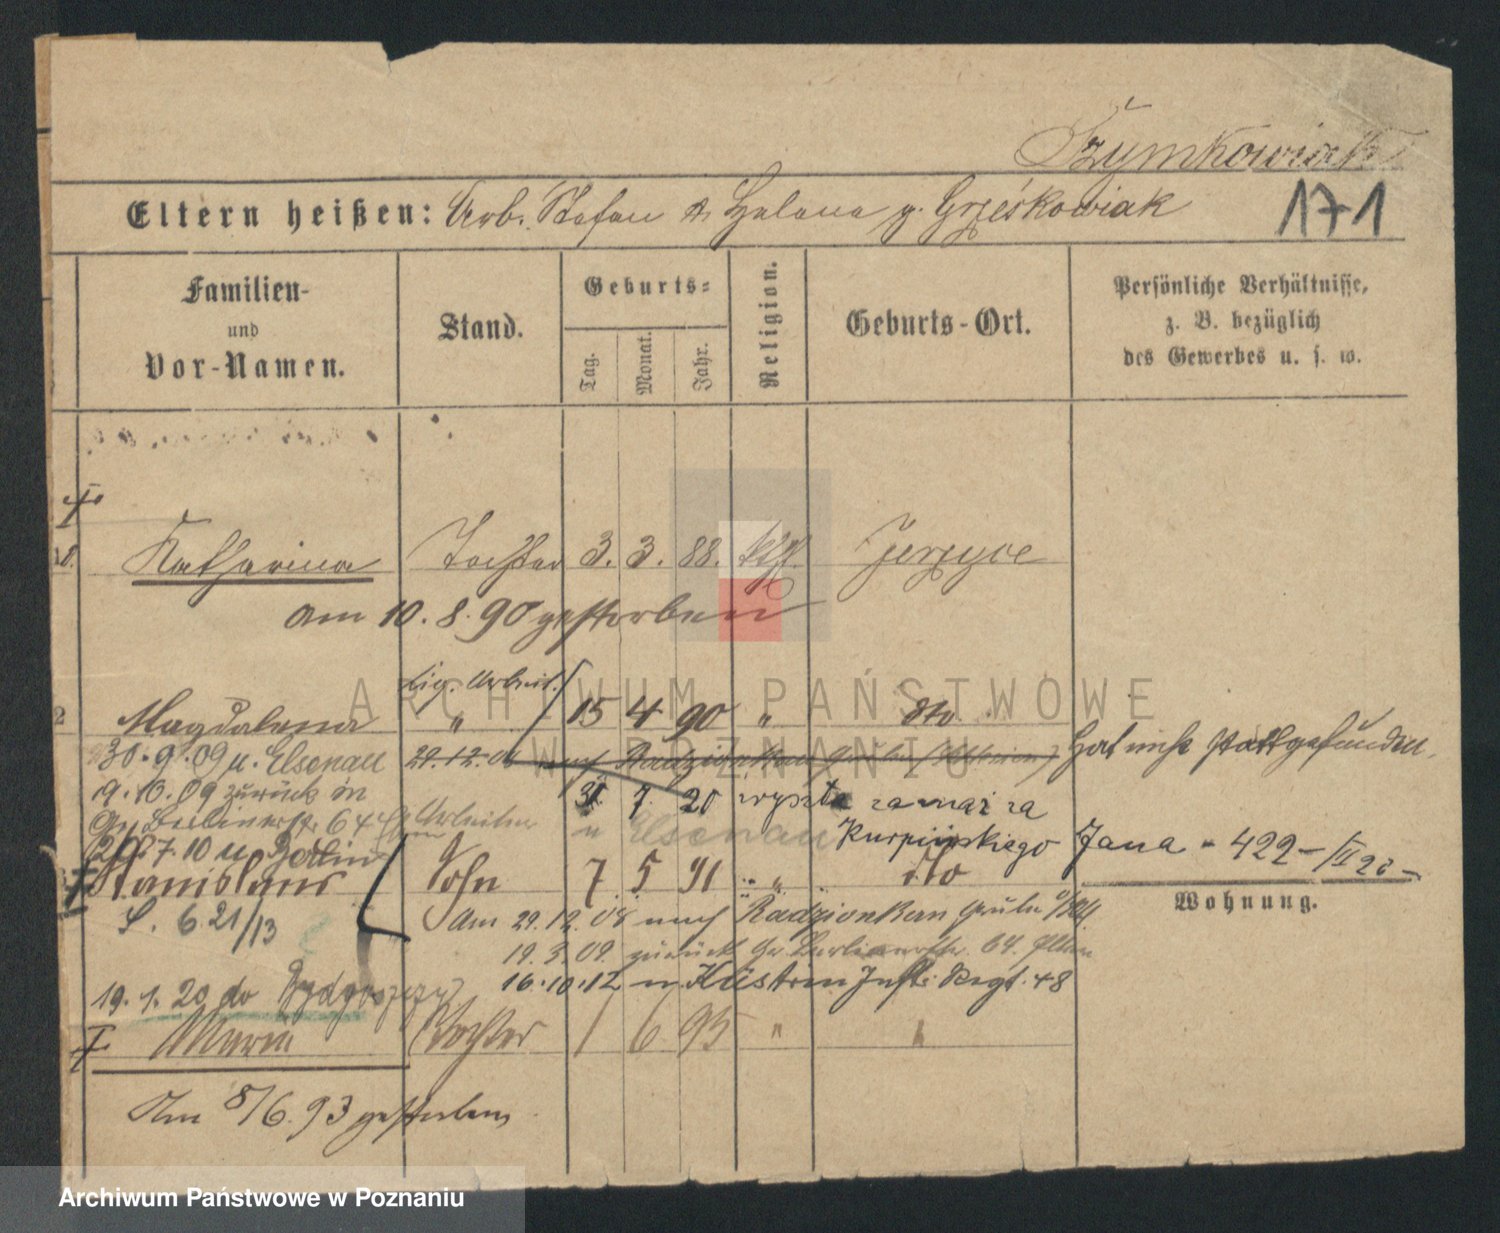 Szymkowiak
171
Eltern heißen: Arb. Stefan & Helena g. Grześkowiak
Familien- und Vor-Namen.
Stand.
Geburts-
Tag.
Monat.
Jahr.
Religion.
Geburts-Ort.
Persönliche Verhältnisse, z. B. bezüglich des Gewerbes u. s. w.
Katharina Tochter 3. 3. 88. kth. Jerzyce
am 10. 8. 90 gestorben
Cig. Arbeit.
2 Magdalena " 15 4 90 " dto
30. 9. 09 n. Elsenau 29. 12. 08 nach Radzionkau hat nicht stattgefunden.
19. 10. 09 zurück in
Gr. Berlinerstr. 64 Arbeiter
31. 7. 20 wyszła za mąż za
n Elsenau
Kurpińskiego Jana - 422 - /II 20 -
7. 10 n Berlin
Stanislaus Sohn 7 5 91 " dto
Wohnung.
S. 6. 21/13
Am 29. 12. 08 nach Radzionkau
19. 3. 09. zurück Gr. Berlinerstr. 64. Eltern
16. 10. 12 n. Küstrin Inft. Regt. 48
19. 1. 20 do Bydgoszczy
Maria Tochter 1 6 93 " "
Am 8/6. 93 gestorben
ARCHIWUM PAŃSTWOWE
W POZNANIU
Archiwum Państwowe w Poznaniu